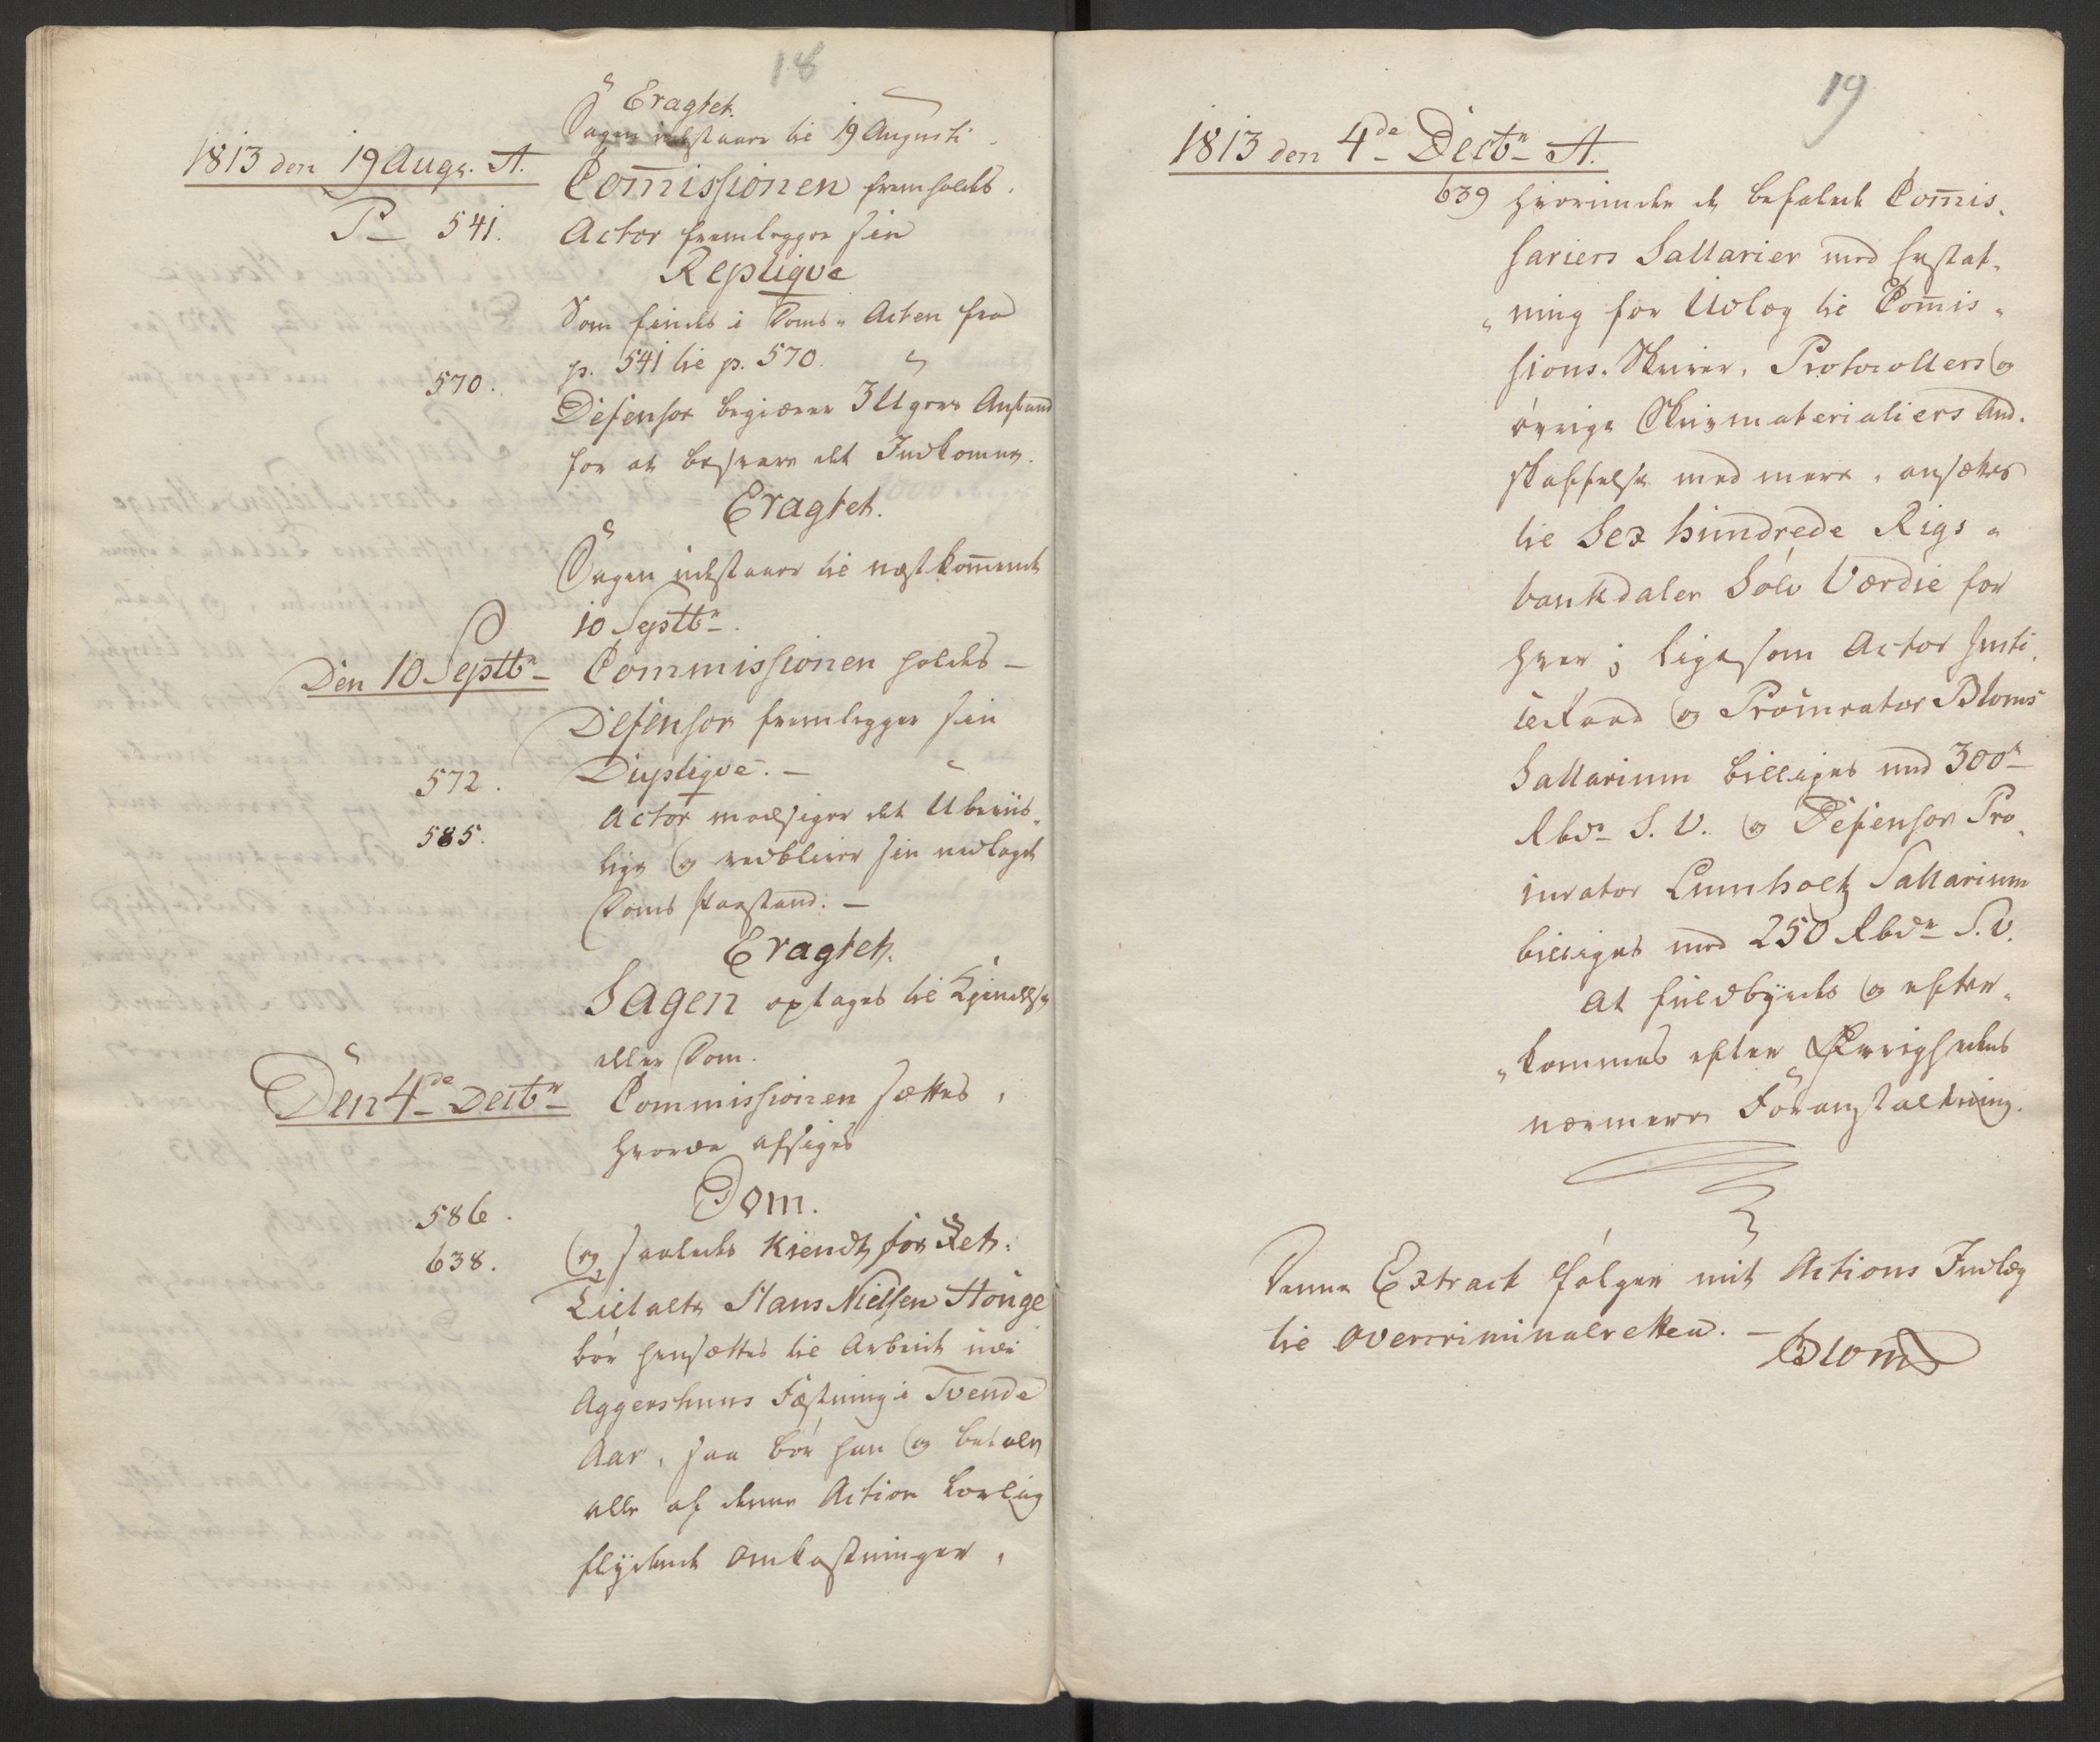 18
Eragtet.
Sagen udstaaer til 19 Augusti
1813 den 19 Augs. A.
Com̅issionen fremholdes.
P_ 541.
Actor fremlegger sin
Repliqve
Som findes i Doms-Acten fra
p. 541 til p. 570.
570.
Defensor begiærer 3 Ugers Anstand
for at besvare det Indkomne.
Eragtet.
Sagen udstaaer til næstkom̅ende
10 Septbr.
Den 10 Septbr
Commissionen holdes _
Defensor fremlegger sin
572.
Dupliqve. _
585.
Actor modsiger det Ubeviis-
lige og vedbliver sin nedlagde
Doms Paastand. _
Eragtet.
Sagen optages til Kjendelse
eller Dom.
Den 4de Decbr
Commissionen sættes,
hvorda afsiges
586.
Dom.
638.
og saaledes Kiendt for Ret:
Tiltalte Hans Nielsen Houge
bør hensættes til Arbeide ved
Aggershuus Fæstning i Tvende
Aar, saa bør han og betale
alle af denne Action lovlig
flydende Omkostninger,
19
1813 den 4de Decbr A.
639 hvorunder de befalede Com̅is-
sariers Sallarier med Erstat-
ning for Udlæg til Com̅is-
sions-Skriver, Protocollers og
øvrige Skrivmaterialiers An-
skaffelse med mere, ansættes
til Sex hundrede Rigs-
bankdaler Sølv Værdie for
hver; ligesom Actor Justi-
tieraad og Procurator Bloms
Sallarium billiges med 300
Rbdr S. V. og Defensor Pro-
curator Lumholtz Sallarium
billiges med 250 Rbdr S. V.
At fuldbyrdes og efter-
kommes efter Øvrighedens
nærmere Foranstaltning.
Denne Extract følger mit Actions Indlæg
til Overcriminalretten. _
Blom